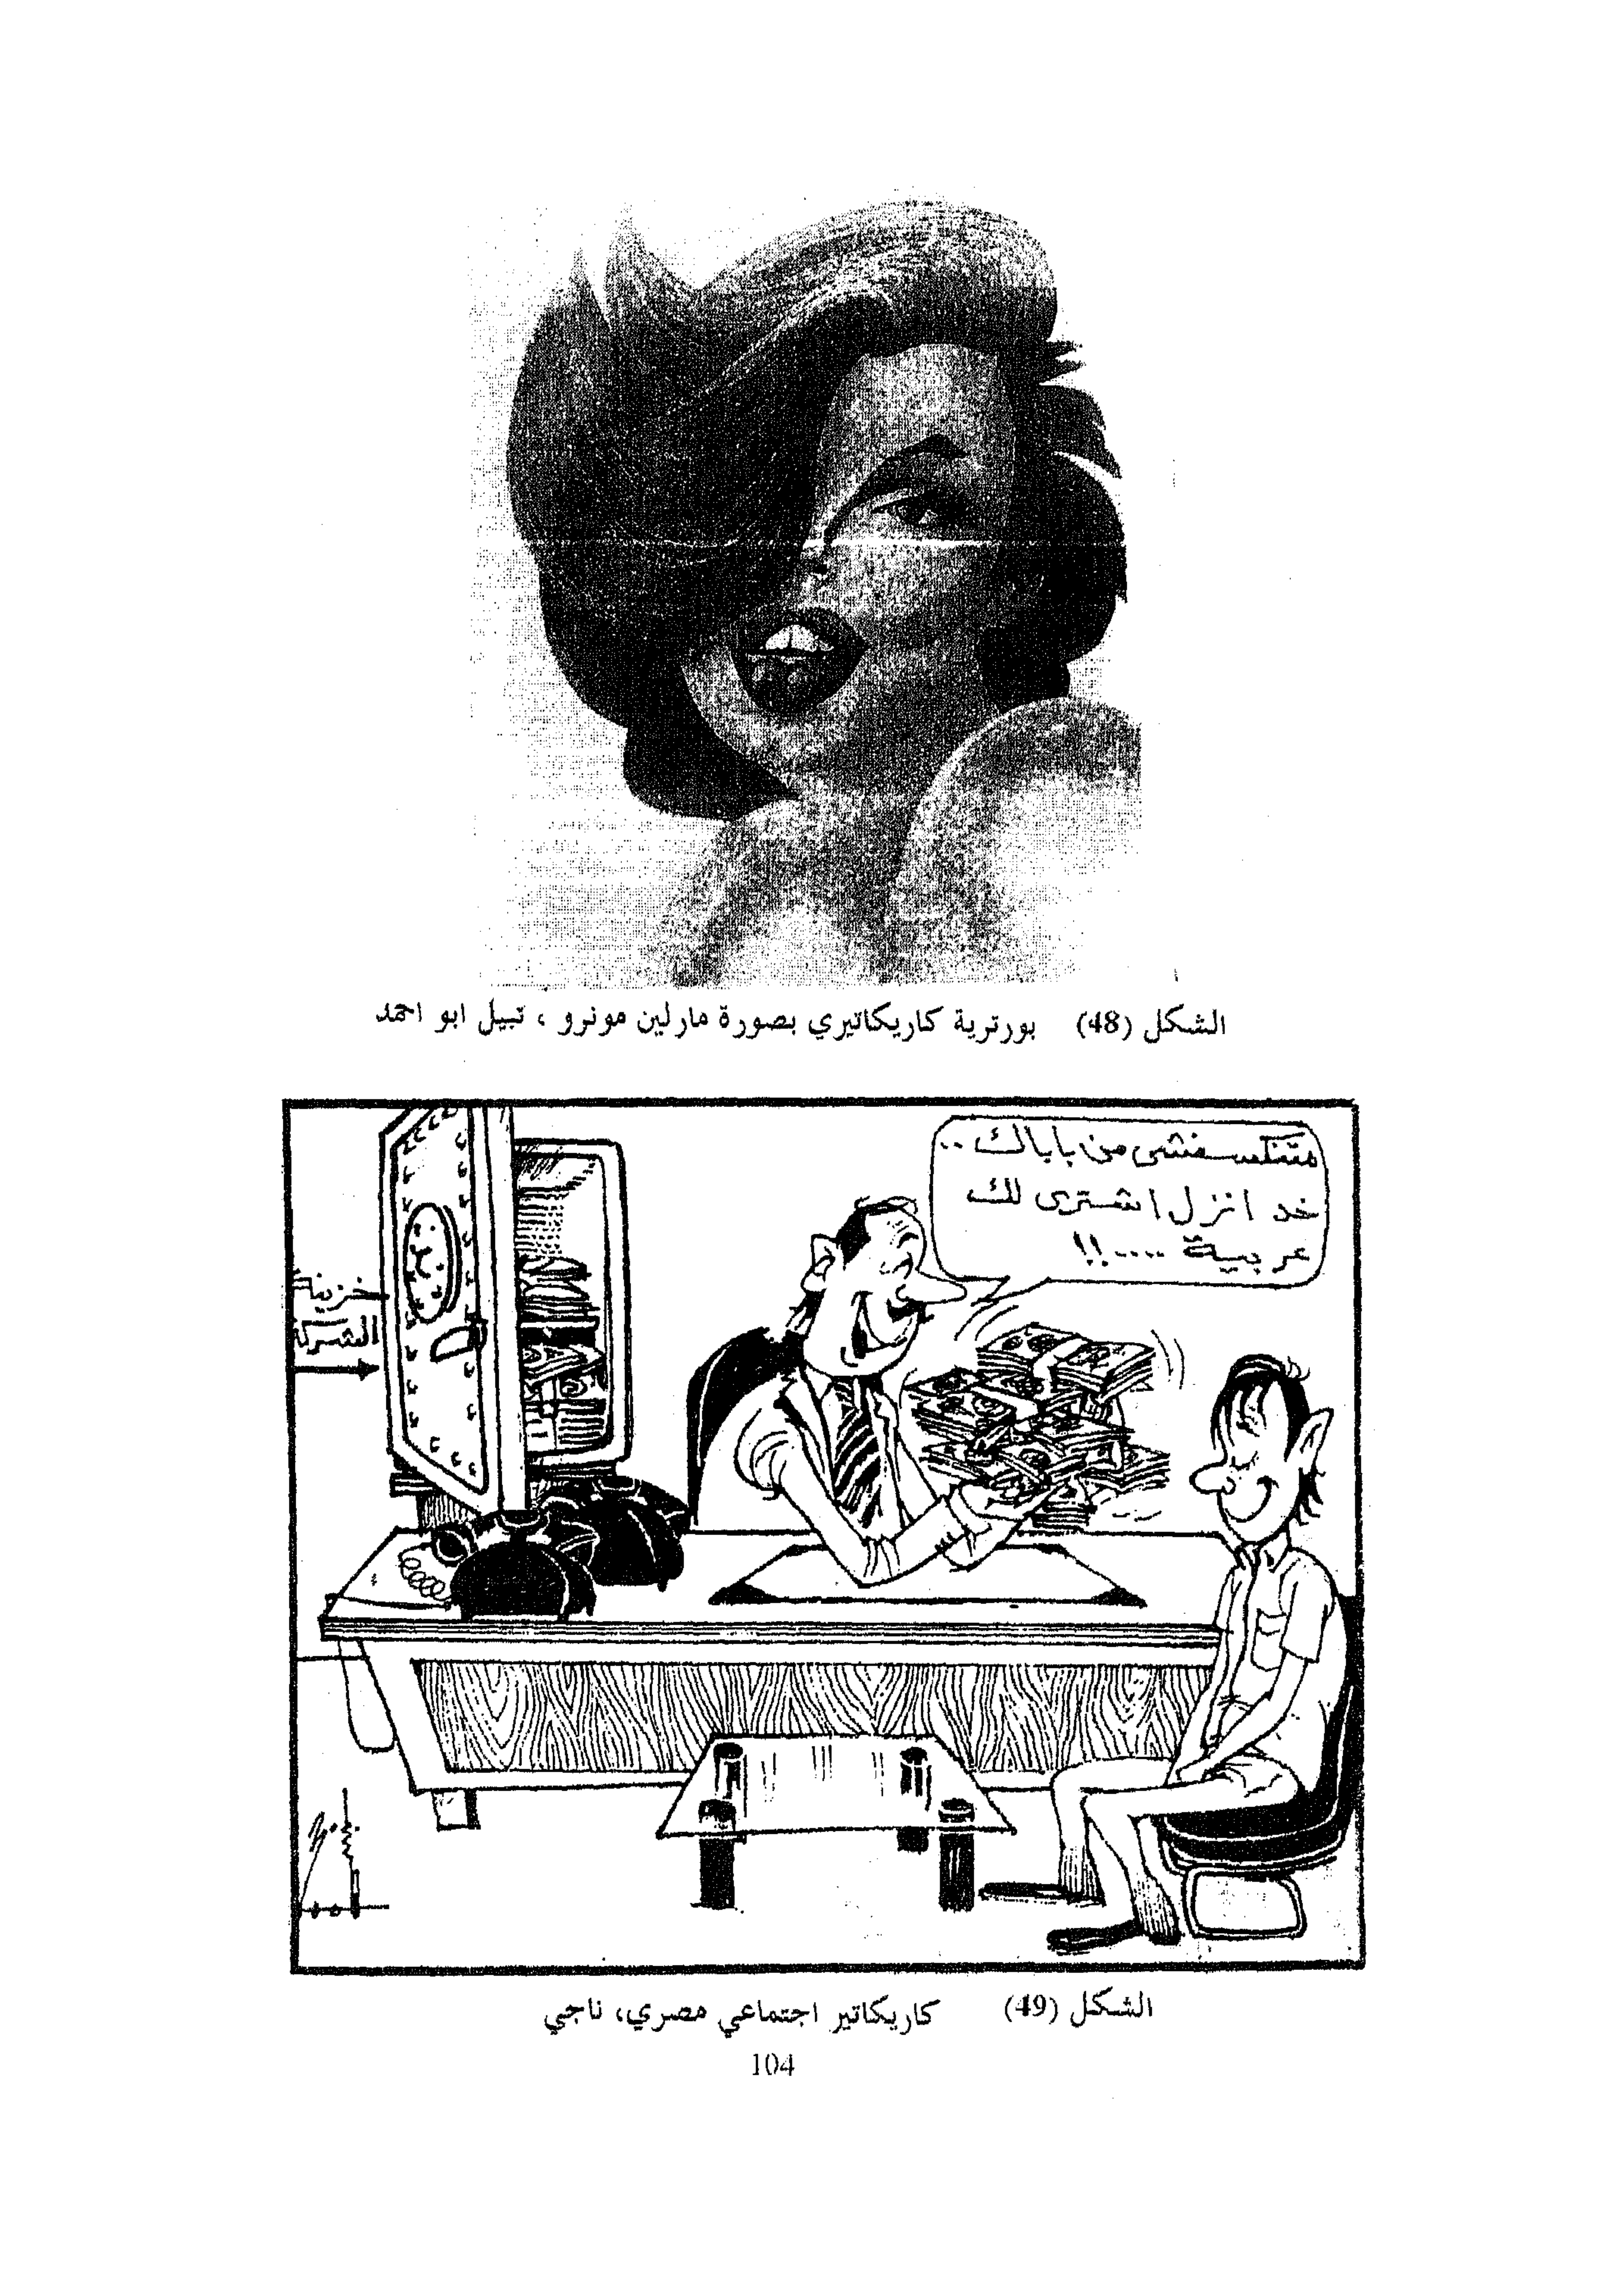 الشكل (48) بورترية كاريكاتيري بصورة مارلين مونرو ، نبيل ابو احمد
متنكسفش من باباك ..
خد انزل اشترى لك
عربية ....!!
خزينة
الشركة
الشكل (49) كاريكاتير اجتماعي مصري، ناجي
104